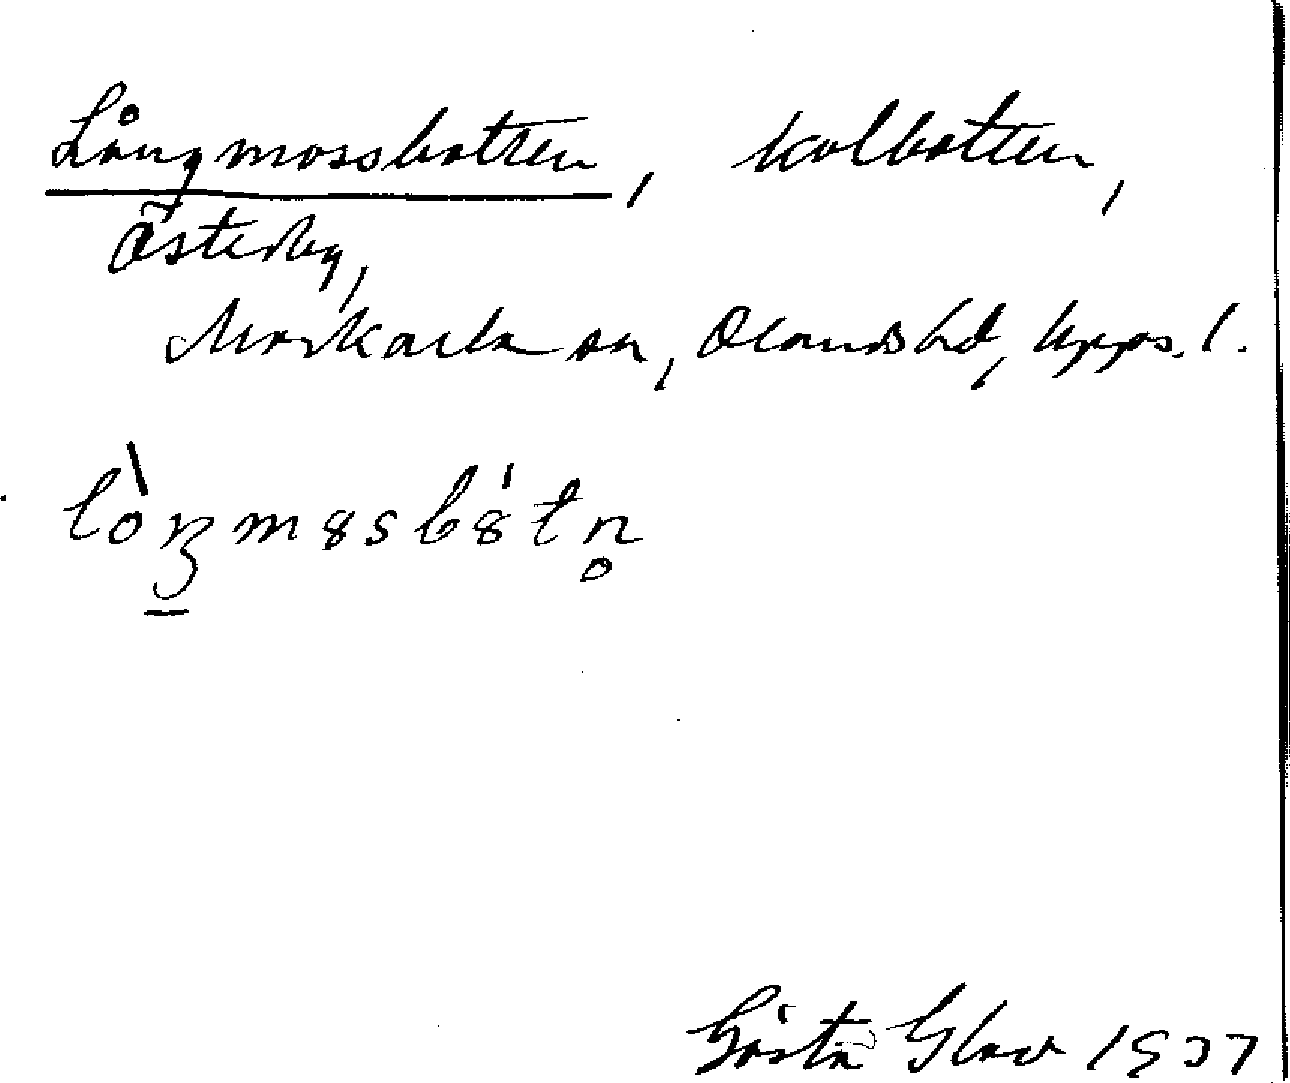 Långmossbotten, kolbotten,
Österby,
Morkarla sn, Olands hd, Upps. l.
lò̀ŋmɞsbɞ́tn̥
Gösta 1937